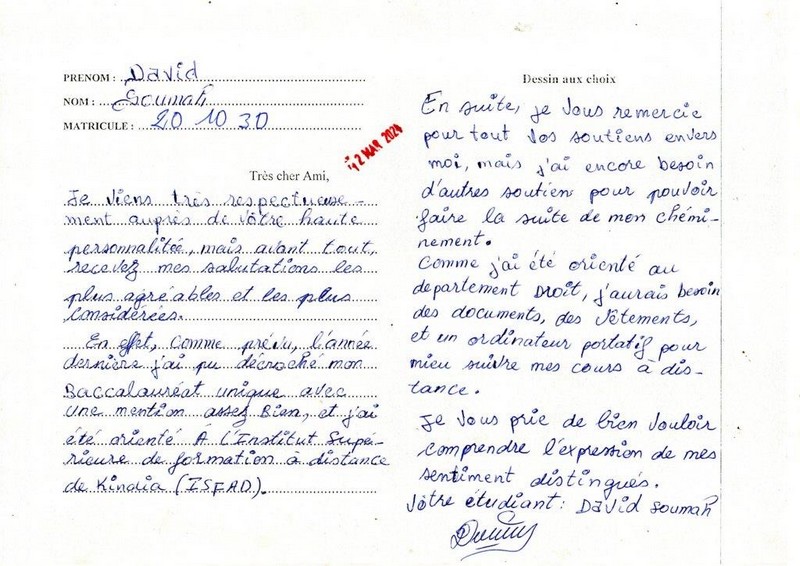 PRENOM : David
NOM : Soumah
MATRICULE : 20 10 30
12 MAR 2024
Très cher Ami,
Je viens très respectueuse-
ment auprès de vôtre haute
personnalitée, mais avant tout,
recevez mes salutations les
plus agréables et les plus
considérées.
En effet, comme prévu, l'année
dernière j'ai pu décroché mon
Baccalauréat unique avec
une mention assez Bien, et j'ai
été orienté A l'Institut Supé-
rieure de formation à distance
de Kindia (ISFAD).
Dessin aux choix
En suite, je vous remercie
pour tout vos soutiens envers
moi, mais j'ai encore besoin
d'autres soutien pour pouvoir
faire la suite de mon chémi-
nement.
Comme j'ai été orienté au
departement Droit, j'aurais besoin
des documents, des vêtements,
et un ordinateur portatif pour
mieu suivre mes cours à dis-
tance.
Je vous prie de bien vouloir
comprendre l'expression de mes
sentiment distingués.
Vôtre étudiant : David soumah